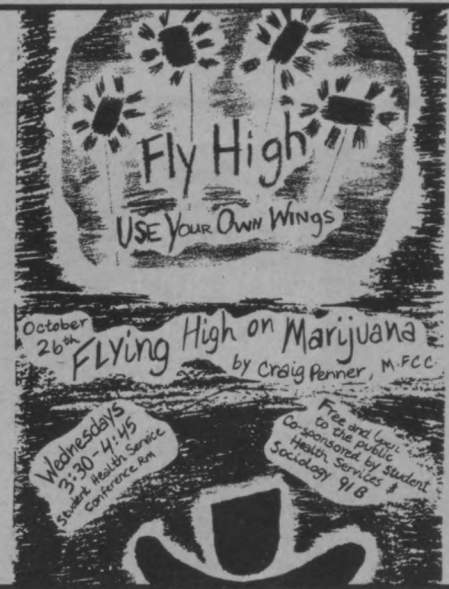 Fly High
USE YOUR OWN WINGS
October
26th
FLYing High on Marijuana
by Craig Penner, M.F.C.C.
Wednesdays
3:30-4:45
Student Health Service
Conference Rm
Free and
to the public
Co-sponsored by Student
Health Services &
Sociology 91B